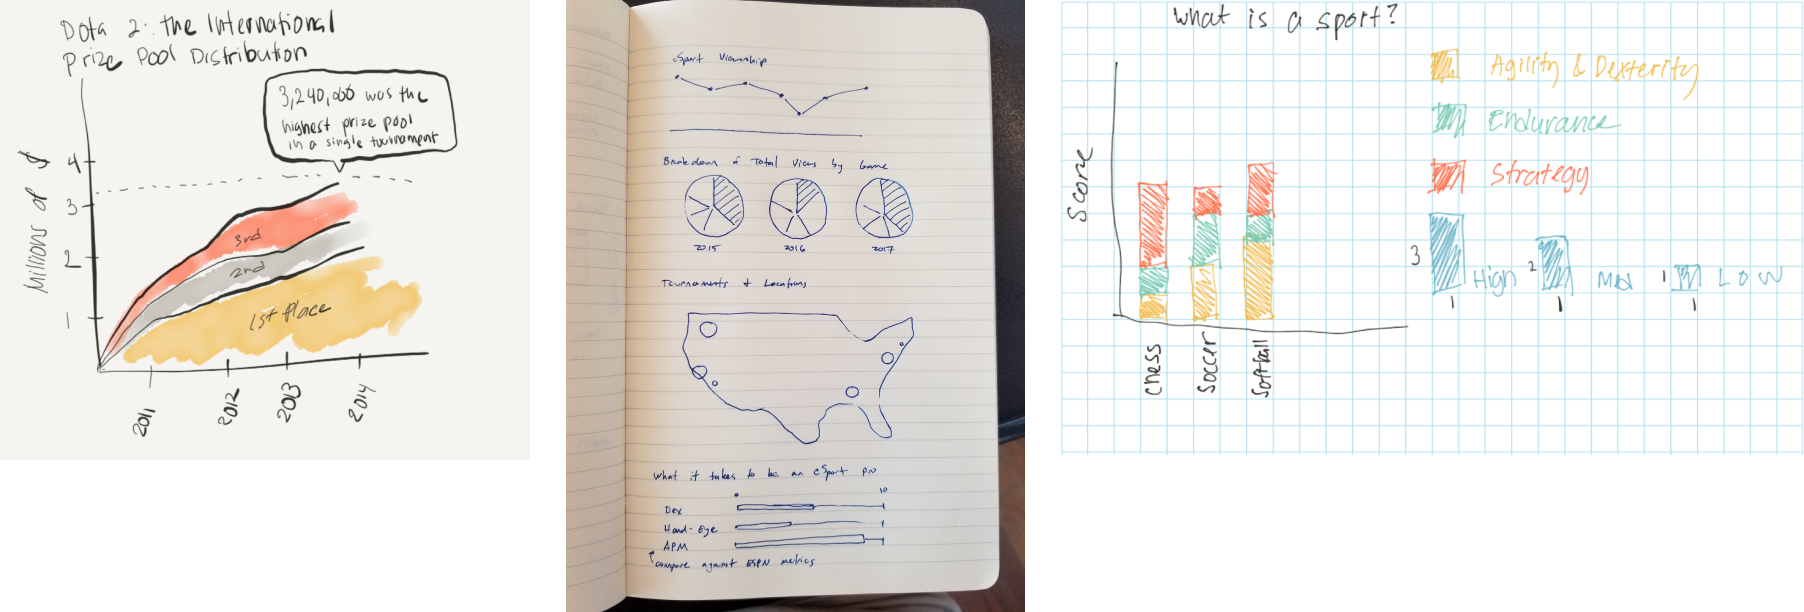 Dota 2: the International
Prize Pool Distribution
3,240,000 was the
highest prize pool
in a single tournament
Millions of $
4
3
2
1
3rd
2nd
1st place
2011
2012
2013
2014
eSport Viewership
Breakdown of Total Views by Game
2015
2016
2017
Tournaments + Locations
What it takes to be an eSport pro
0
10
Dex
Hand-Eye
APM
compare against ESPN metrics
What is a sport?
Score
Chess
Soccer
Softball
Agility & Dexterity
Endurance
Strategy
3
High
2
Med
1
LOW